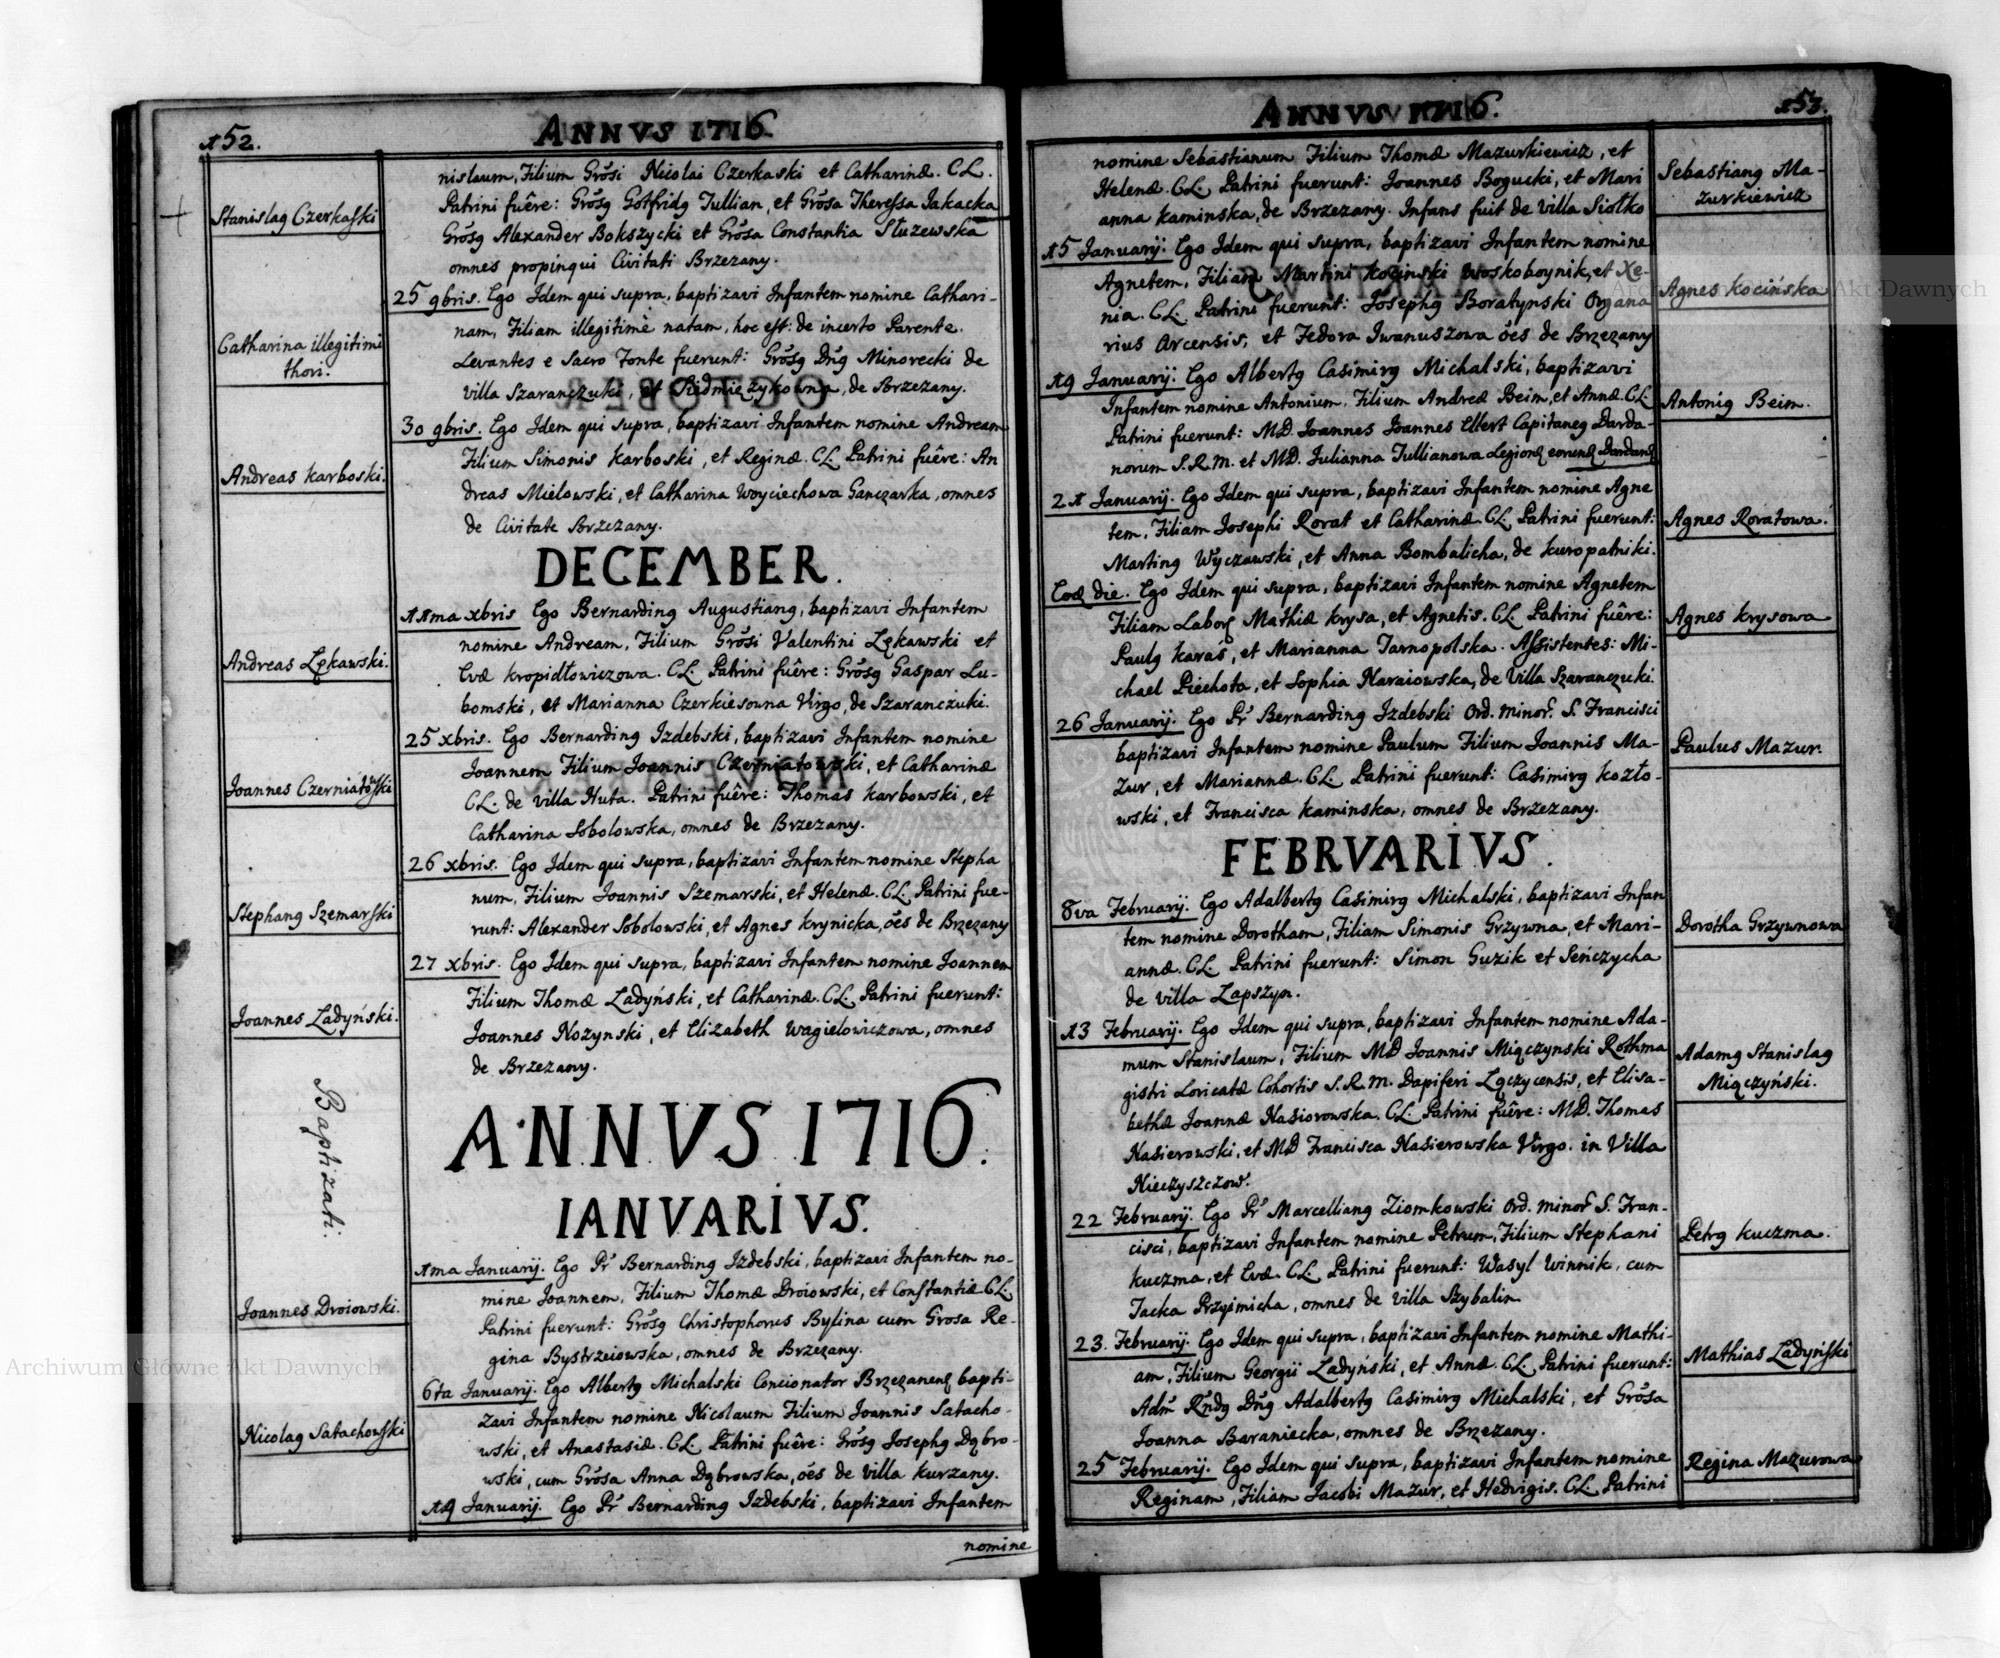 152.
ANNVS 1716
Stanislaꝰ Czerkaſki
nislaum, Filium Grōsi Nicolai Czerkaski et Catharinæ. CL.
Patrini fuêre: Grōsꝰ Gotfridꝰ Jullian, et Grōsa Theressa Jakacka
Grōsꝰ Alexander Bokszycki et Grōsa Constantia Służewska
omnes propinqui Civitati Brzezany.
Catharina illegitimi
thori.
25 9bris. Ego Idem qui supra, baptizavi Infantem nomine Cathari-
nam, Filiam illegitimè natam, hoc eſt: de incerto Parente.
Levantes e Sacro Fonte fuerunt: Grōsꝰ Dn̄ꝰ Minorecki de
villa Szaranczuki, et Siedmieżykowna, de Brzezany.
Andreas Karboski.
30 9bris. Ego Idem qui supra, baptizavi Infantem nomine Andream
Filium Simonis Karboski, et Reginæ. CL. Patrini fuêre: An
dreas Mielowski, et Catharina Woyciechowa Ganczarka, omnes
de Civitate Brzezany.
DECEMBER.
Andreas Lękawski.
11ma xbris Ego Bernardinꝰ Augustianꝰ, baptizavi Infantem
nomine Andream, Filium Grōsi Valentini Lękawski et
Evæ Kropidłowiczowa. CL. Patrini fuêre: Grōsꝰ Gaspar Lu-
bomski, et Marianna Czerkiesowna Virgo, de Szaranczuki.
Joannes Czerniatoẃſki
25 xbris. Ego Bernardinꝰ Izdebski, baptizavi Infantem nomine
Joannem Filium Joannis Czerniatowski, et Catharinæ
CL. de villa Huta. Patrini fuêre: Thomas Karbowski, et
Catharina Sobolowska, omnes de Brzezany.
Stephanꝰ Szemarſki
26 xbris. Ego Idem qui supra, baptizavi Infantem nomine Stepha
num, Filium Joannis Szemarski, et Helenæ. CL. Patrini fue-
runt: Alexander Sobolowski, et Agnes Krynicka, ōēs de Brzezany
Joannes Ladyński.
27 xbris. Ego Idem qui supra, baptizavi Infantem nomine Joannem
Filium Thomæ Ladyński, et Catharinæ. CL. Patrini fuerunt:
Joannes Nozynski, et Elizabeth Wagielowiczowa, omnes
de Brzezany.
Baptizati.
ANNVS 1716.
IANVARIVS.
Joannes Droiowski.
1ma Januarij. Ego Pr̄ Bernardinꝰ Izdebski, baptizavi Infantem no-
mine Joannem, Filium Thomæ Droiowski, et Conſtantiæ CL.
Patrini fuerunt: Grōsꝰ Christophorus Bylina cum Grosa Re-
gina Bystrzeiowska, omnes de Brzezany.
Nicolaꝰ Satachowſki
6ta Januarij. Ego Albertꝰ Michalski Concionator Brzezanenꝭ bapti-
zavi Infantem nomine Nicolaum Filium Joannis Satacho-
wski, et Anastasiæ. CL. Patrini fuêre: Grōsꝰ Josephꝰ Dąbro-
wski, cum Grōsa Anna Dąbrowska, ōēs de villa Kurzany.
19 Januarij. Ego Pr̄ Bernardinꝰ Izdebski, baptizavi Infantem
nomine
ANNVS 1716.
153.
nomine Sebastianum Filium Thomæ Mazurkiewicz, et
Helenæ. CL. Patrini fuerunt: Joannes Bogucki, et Mari
anna Kaminska, de Brzezany. Infans fuit de villa Siołko
Sebastianꝰ Ma-
zurkiewicz
15 Januarij. Ego Idem qui supra, baptizavi Infantem nomine
Agnetem, Filiam Martini Kocinski Woskoboynik, et Xe-
nia. CL. Patrini fuerunt: Josephꝰ Boratynski Organa
rius Arcensis, et Fedora Iwanuszowa ōēs de Brzezany
Agnes Kocińska
19 Januarij. Ego Albertꝰ Casimirꝰ Michalski, baptizavi
Infantem nomine Antonium, Filium Andreæ Beim, et Annæ. CL
Patrini fuerunt: MD. Joannes Joannes Ellert Capitaneꝰ Darda-
norum S.R.M. et MD. Julianna Jullianowa Legionꝭ eorunꝭ Dardanꝭ
Antoniꝰ Beim.
21 Januarij. Ego Idem qui supra, baptizavi Infantem nomine Agne
tem, Filiam Josephi Rorat et Catharinæ. CL. Patrini fuerunt:
Martinꝰ Wyczawski, et Anna Bombalicha, de Kuropatniki.
Agnes Roratowa.
Eoꝭ die. Ego Idem qui supra, baptizavi Infantem nomine Agnetem
Filiam Laborꝭ Mathiæ Krysa, et Agnetis. CL. Patrini fuêre:
Paulꝰ Karaś, et Marianna Tarnopolska. Aſsistentes: Mi-
chael Piechota, et Sophia Naraiowska, de Villa Szaranczuki.
Agnes Krysowa
26 Januarij. Ego Pr̄ Bernardinꝰ Izdebski Ord. minor̄. S. Francisci
baptizavi Infantem nomine Paulum Filium Joannis Ma-
zur, et Mariannæ. CL. Patrini fuerunt: Casimirꝰ Kozło-
wski, et Francisca Kaminska, omnes de Brzezany.
Paulus Mazur.
FEBRVARIVS.
8va Februarij. Ego Adalbertꝰ Casimirꝰ Michalski, baptizavi Infan
tem nomine Dorotham, Filiam Simonis Grzywna, et Mari-
annæ. CL. Patrini fuerunt: Simon Guzik et Seńczycha
de villa Łapszyn.
Dorotha Grzywnowa
13 Februarij. Ego Idem qui supra, baptizavi Infantem nomine Ada-
mum Stanislaum, Filium MD Joannis Miączynski Rothma
gistri Loricatæ Cohortis S.R.M. Dapiferi Łączycensis, et Elisa-
bethæ Joannæ Nasiorowska. CL. Patrini fuêre: MD. Thomas
Nasierowski, et MD Francisca Nasierowska Virgo. in Villa
Nieczyszczow.
Adamꝰ Stanislaꝰ
Miączyński.
22 Februarij. Ego Pr̄ Marcellianꝰ Ziomkowski Ord. minor̄ S. Fran-
cisci, baptizavi Infantem nomine Petrum, Filium Stephani
Kuczma, et Evæ. CL. Patrini fuerunt: Wasyl Winnik, cum
Jacka Przyimicha, omnes de villa Szybalin
Petrꝰ Kuczma.
23. Februarij. Ego Idem qui supra, baptizavi Infantem nomine Mathi-
am, Filium Georgii Ladyński, et Annæ. CL. Patrini fuerunt:
Adm̄ Rn̄dꝰ Dn̄ꝰ Adalbertꝰ Casimirꝰ Michalski, et Grōsa
Joanna Baraniecka, omnes de Brzezany.
Mathias Ladyńſki
25 Februarij. Ego Idem qui supra, baptizavi Infantem nomine
Reginam, Filiam Jacobi Mazur, et Hedvigis. CL. Patrini
Regina Mazurowa
Archiwum Główne Akt Dawnych
Archiwum Główne Akt Dawnych